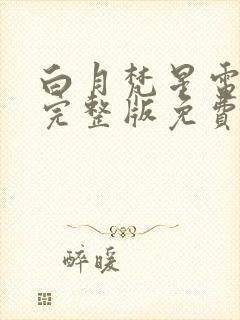 白月梵星電
完整版免費
醉暖